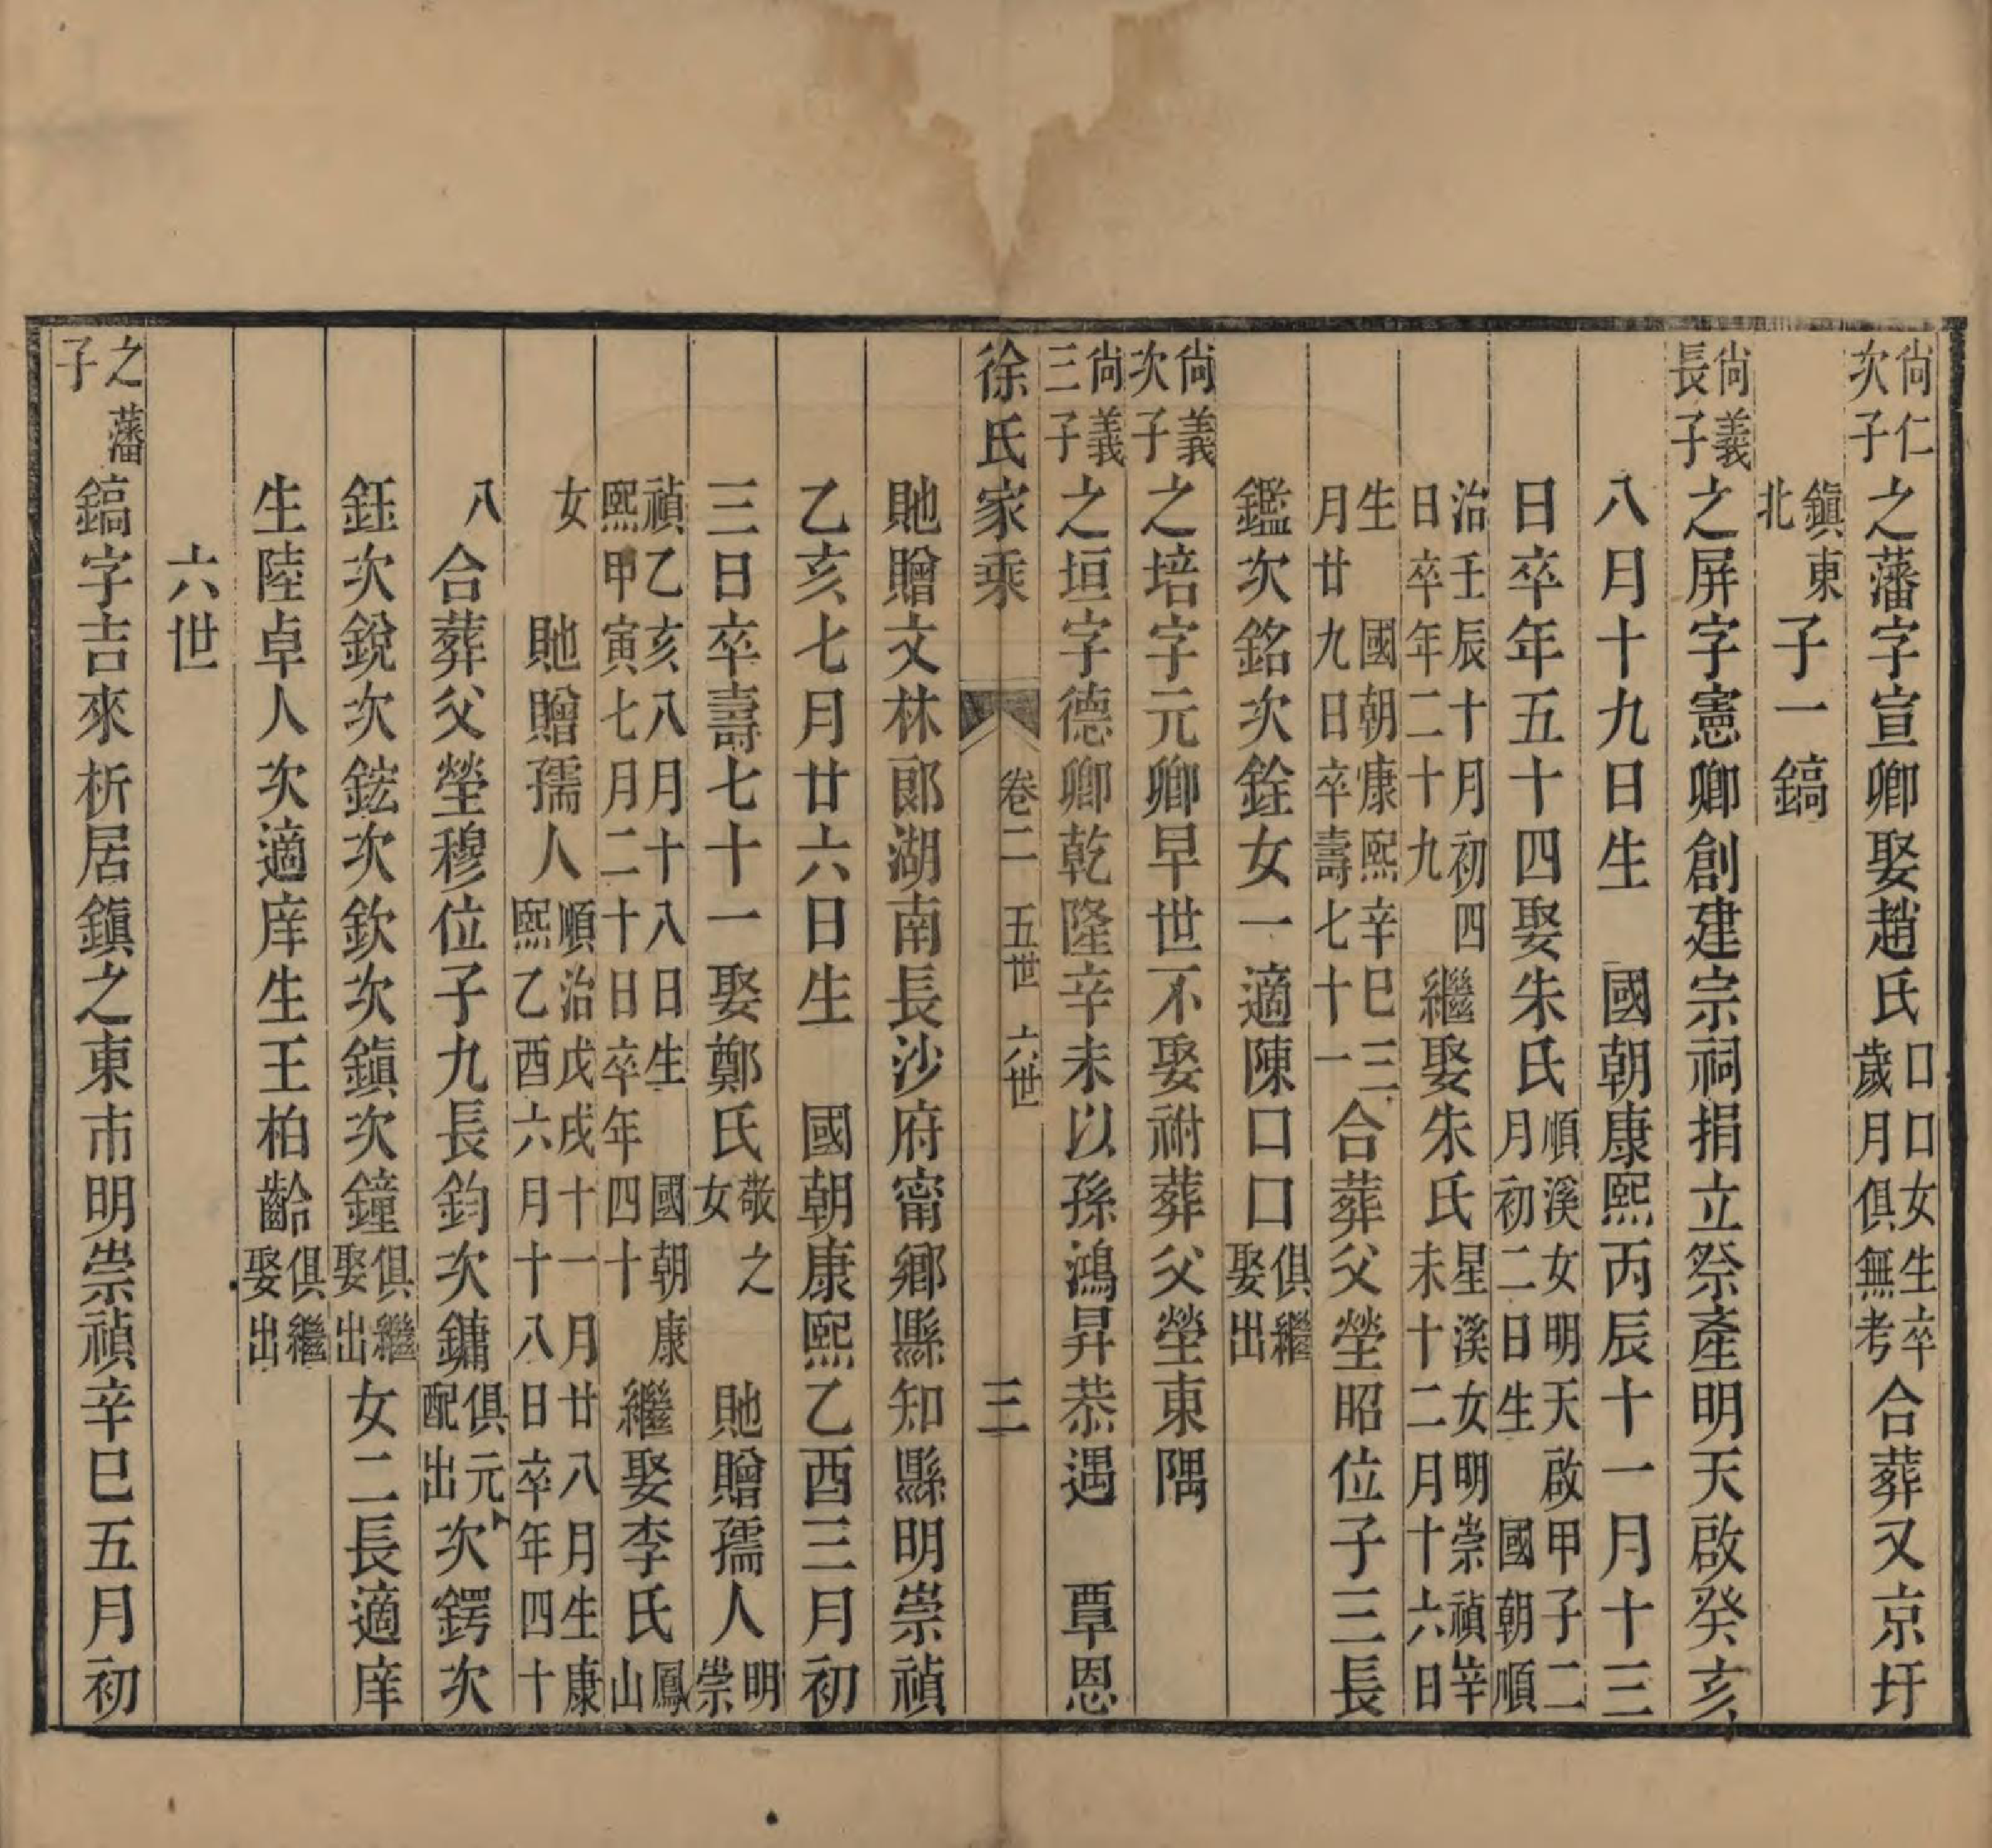 尙仁次子之藩字宣卿娶趙氏口口女生卒歲月俱無考合葬又京圩
鎭東北子一鎬
尙義長子之屏字憲卿創建宗祠捐立祭產明天啟癸亥
八月十九日生　國朝康熙丙辰十一月十三
日卒年五十四娶朱氏順溪女明天啟甲子二月初二日生　國朝順
治壬辰十月初四日卒年二十九繼娶朱氏星溪女明崇禎辛未十二月十六日
生　國朝康熙辛巳三月廿九日卒壽七十一合葬父塋昭位子三長
鑑次銘次銓女一適陳口口俱繼娶出
尙義次子之培字元卿早世不娶祔葬父塋東隅
尙義三子之垣字德卿乾隆辛未以孫鴻昇恭遇　覃恩
徐氏家乘　卷二　五世　六世　三
貤贈文林郞湖南長沙府甯鄉縣知縣明崇禎
乙亥七月廿六日生　國朝康熙乙酉三月初
三日卒壽七十一娶鄭氏敬之女　貤贈孺人明崇
禎乙亥八月十八日生　國朝康熙甲寅七月二十日卒年四十繼娶李氏鳳山
女　貤贈孺人順治戊戌十一月廿八月生康熙乙酉六月十八日卒年四十
八合葬父塋穆位子九長鈞次鏞俱元配出次鍔次
鈺次銳次鋐次欽次鎭次鐘俱繼娶出女二長適庠
生陸卓人次適庠生王柏齡俱繼娶出
六世
之藩子鎬字吉來析居鎭之東市明崇禎辛巳五月初